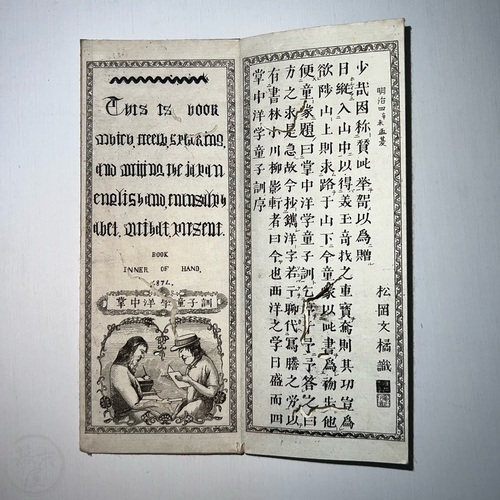 This is book
which, freely, speaking,
BOOK
INNER OF HAND,
掌中洋学童子訓
掌中洋学童子訓序
有書林小川柳影軒者曰今也西洋之学日盛而四
方之求是急故今抄鐫洋字若干聊代寫謄之労以
便童蒙題曰掌中洋学童子訓乞序于予予答之曰
欲陟山上則求路于山下今童蒙以此書為
日縦入山中以得美玉奇找之重寶奮則其功豈為
少哉因称賛此挙以為贈
明治四辛未孟夏
松岡文橘識